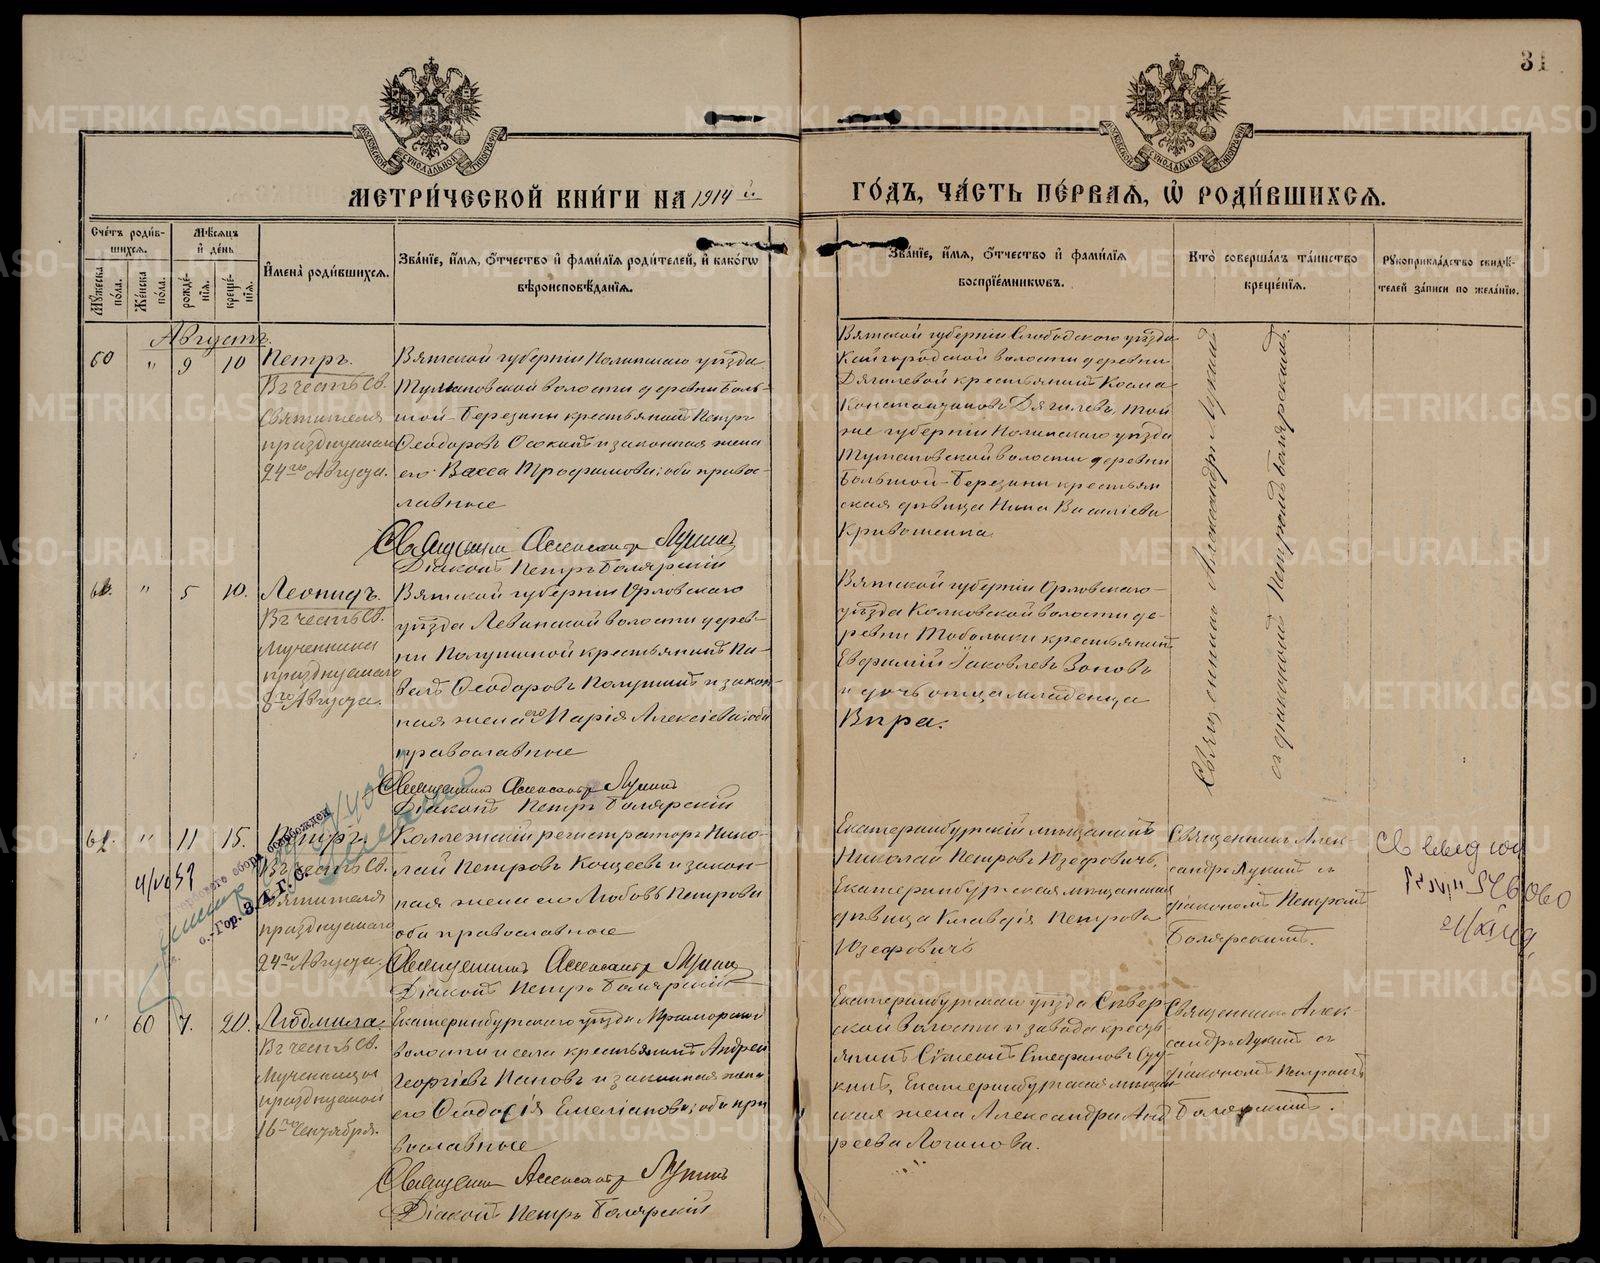 31
МЕТРИЧЕСКОЙ КНИГИ НА 1914 й
ГОДЪ, ЧАСТЬ ПЕРВАЯ, Ѡ РОДИВШИХСЯ.
Счетъ родив-
шихся.
Мужеска пола.
Женска пола.
Мѣсяцъ
и день
рожде-
нія.
креще-
нія.
Имена родившихся.
Званіе, имя, отчество и фамилія родителей, и какогѡ
вѣроисповѣданія.
Званіе, имя, отчество и фамилія
воспріемниковъ.
Кто совершалъ таинство
крещенія.
Рукоприкладство свидѣ-
телей записи по желанію.
Августъ.
60 " 9 10
Петръ.
Въ честь Св.
Святителя
празднуемаго
24го Августа.
Вятской губерніи Нолинскаго уѣзда
Тумановской волости деревни Боль-
шой-Березины крестьянинъ Петръ
Ѳеодоровъ Осокинъ и законная жена
его Васса Трофимова; оба право-
славные
Священникъ Александръ Лукинъ
Діаконъ Петръ Боярскій
Вятской губерніи Слободского уѣзда
Кайгородской волости деревни
Дягилевой крестьянинъ Косма
Константиновъ Дягилевъ, той
же губерніи Нолинскаго уѣзда
Тумановской волости деревни
Большой-Березины крестьян
ская дѣвица Нина Василіева
Кривошеина
Священникъ Александръ Лукинъ
съ діакономъ Петромъ Боярскимъ.
61. " 5 10.
Леонидъ.
Въ честь Св.
Мученика
празднуемаго
8го Августа.
Вятской губерніи Орловскаго
уѣзда Левинской волости дерев-
ни Полушиной крестьянинъ Па-
велъ Ѳеодоровъ Полушинъ и закон-
ная жена его Марія Алексіева; оба
православные
Священникъ Александръ Лукинъ
Діаконъ Петръ Боярскій
Вятской губерніи Орловскаго
уѣзда Колковской волости де-
ревни крестьянинъ
Евфимій Іаковлевъ Зоновъ
и дочь отца младенца
Вѣра.
62. " 11 15.
Петръ.
Въ честь Св.
Святителя
празднуемаго
24го Августа.
Коллежскій регистраторъ Нико-
лай Петровъ Кощеевъ и закон-
ная жена его Любовь Петрова
оба православные
Священникъ Александръ Лукинъ
Діаконъ Петръ Боярскій
Екатеринбургскій мѣщанинъ
Николай Петровъ Юзефовичъ,
Екатеринбургская мѣщанская
дѣвица Клавдія Петрова
Юзефовичъ
Священникъ Алек
сандръ Лукинъ съ
діакономъ Петромъ
Боярскимъ.
" 60 7. 20.
Людмила.
Въ честь Св.
Мученицы
празднуемой
16го Сентября.
Екатеринбургскаго уѣзда Мраморской
волости и села крестьянинъ Андрей
Георгіевъ Пановъ и законная жена
его Ѳеодосія Емеліанова; оба пра
вославные
Священникъ Александръ Лукинъ
Діаконъ Петръ Боярскій
Екатеринбургскаго уѣзда Сѣвер-
ской волости и завода кресть
янинъ Сѵмеонъ Стефановъ
Екатеринбургская мѣщан
ская жена Александра Анд
реева Логинова.
Священникъ Алек
сандръ Лукинъ съ
діакономъ Петромъ
Боярскимъ.
METRIKI.GASO-URAL.RU